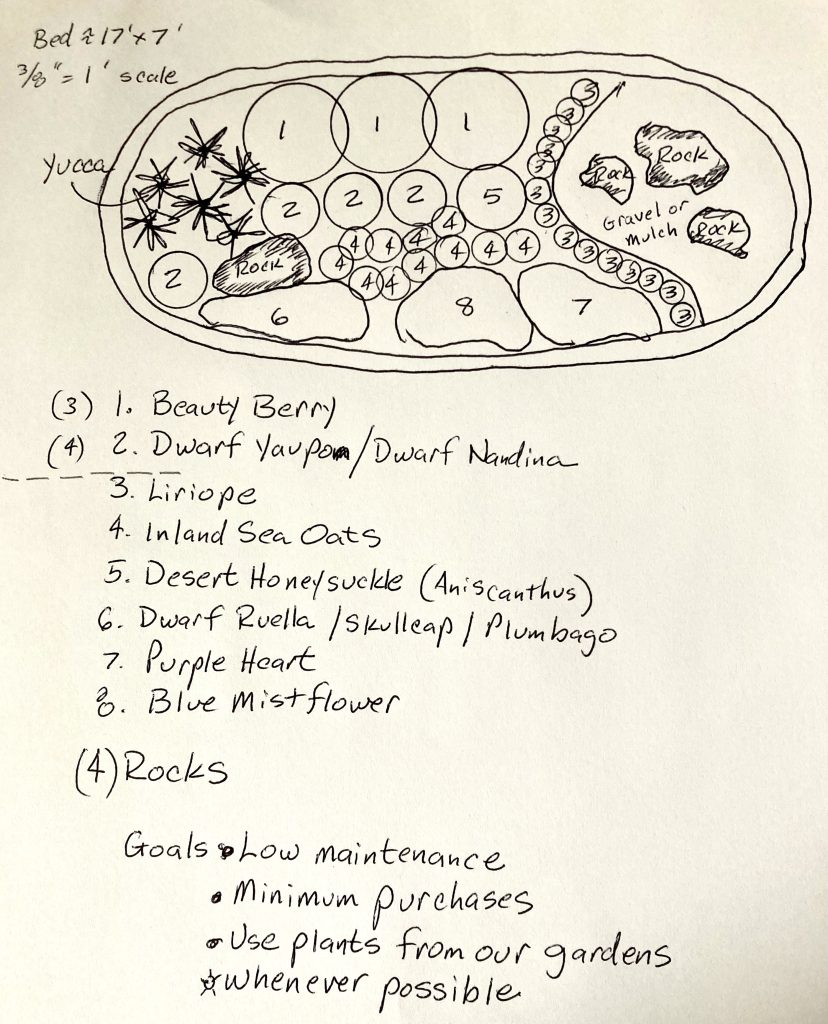 Bed ≈ 17' x 7'
3/8" = 1' scale
Yucca
1 1 1
2 2 2 5
2
Rock
4 4 4 4 4 4 4 4 4 4 4
3 3 3 3 3 3 3 3 3 3 3 3 3 3
6 8 7
Rock Rock
Gravel or
mulch Rock
(3) 1. Beauty Berry
(4) 2. Dwarf Yaupon/Dwarf Nandina
3. Liriope
4. Inland Sea Oats
5. Desert Honeysuckle (Aniscanthus)
6. Dwarf Ruella /Skullcap / Plumbago
7. Purple Heart
8. Blue Mistflower
(4) Rocks
Goals • Low maintenance
• Minimum purchases
• Use plants from our gardens
whenever possible